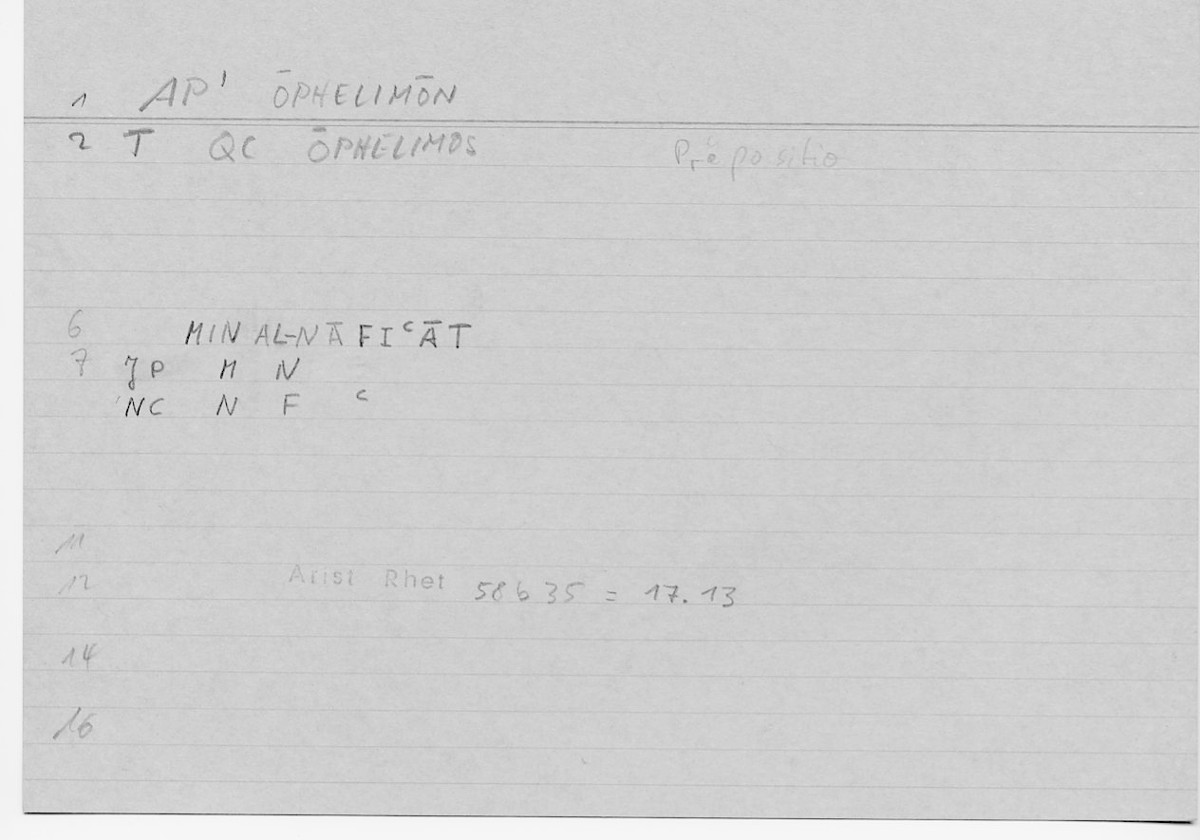 1 AP' ŌPHELIMŌN
2 T QC ŌPHELIMOS Präpositio
6 MIN AL-NĀFIᶜĀT
7 JP M N
NC N F ᶜ
11
12 Arist Rhet 58b35 = 17.13
14
16